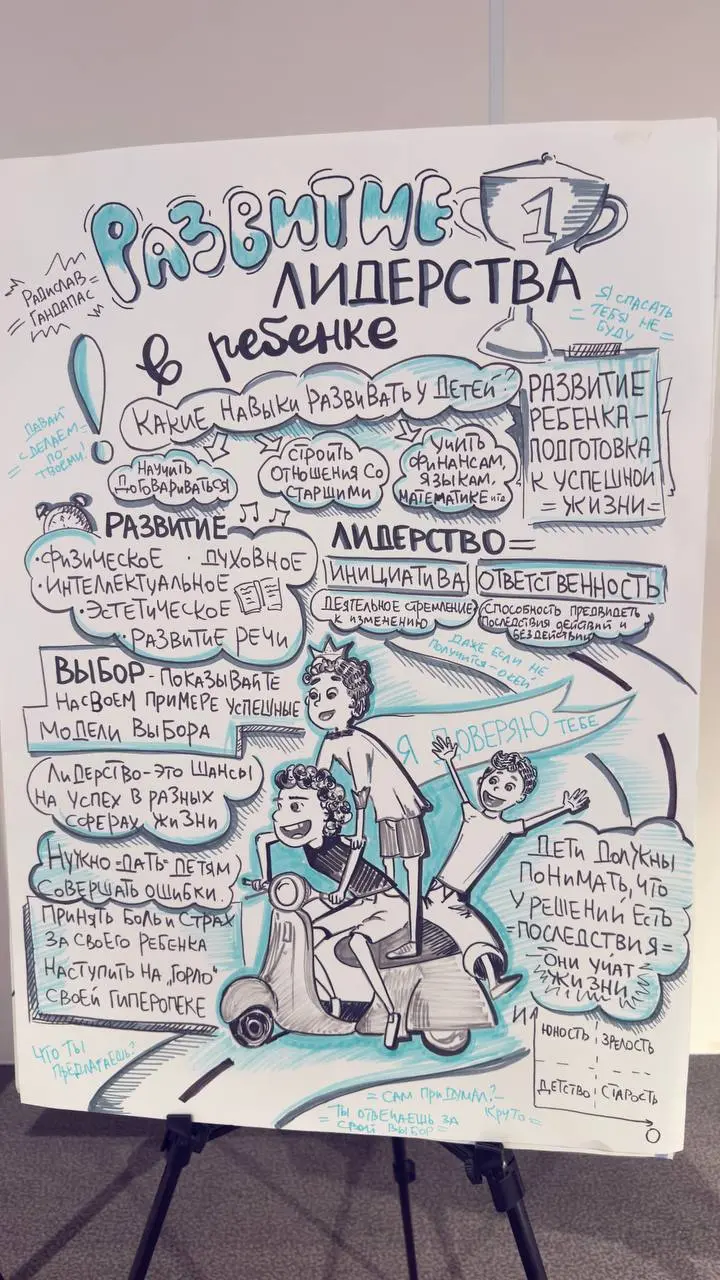 РАЗВИТИЕ
1
ЛИДЕРСТВА
в ребенке
РАДИСЛАВ
ГАНДАПАС
Я СПАСАТЬ
ТЕБЯ НЕ
БУДУ
ДАВАЙ
СДЕЛАЕМ
ПО-
ТВОЕМУ!
КАКИЕ НАВЫКИ РАЗВИВАТЬ У ДЕТЕЙ?
НАУЧИТЬ
ДОГОВАРИВАТЬСЯ
СТРОИТЬ
ОТНОШЕНИЯ СО
СТАРШИМИ
УЧИТЬ
ФИНАНСАМ,
ЯЗЫКАМ,
МАТЕМАТИКЕ итд
РАЗВИТИЕ
РЕБЕНКА -
ПОДГОТОВКА
К УСПЕШНОЙ
= ЖИЗНИ =
РАЗВИТИЕ
· ФИЗИЧЕСКОЕ · ДУХОВНОЕ
· ИНТЕЛЛЕКТУАЛЬНОЕ
· ЭСТЕТИЧЕСКОЕ
· РАЗВИТИЕ РЕЧИ
ЛИДЕРСТВО =
ИНИЦИАТИВА
ДЕЯТЕЛЬНОЕ СТРЕМЛЕНИЕ
К ИЗМЕНЕНИЮ
ОТВЕТСТВЕННОСТЬ
СПОСОБНОСТЬ ПРЕДВИДЕТЬ
ПОСЛЕДСТВИЯ ДЕЙСТВИЙ И
БЕЗДЕЙСТВИЙ
ДАЖЕ ЕСЛИ НЕ
ПОЛУЧИТСЯ - ОКЕЙ
ВЫБОР - ПОКАЗЫВАЙТЕ
НА СВОЕМ ПРИМЕРЕ УСПЕШНЫЕ
МОДЕЛИ ВЫБОРА
Я ДОВЕРЯЮ ТЕБЕ
ЛИДЕРСТВО - ЭТО ШАНСЫ
НА УСПЕХ В РАЗНЫХ
СФЕРАХ ЖИЗНИ
НУЖНО = ДАТЬ = ДЕТЯМ
СОВЕРШАТЬ ОШИБКИ.
ПРИНЯТЬ БОЛЬ И СТРАХ
ЗА СВОЕГО РЕБЕНКА
НАСТУПИТЬ НА „ГОРЛО"
СВОЕЙ ГИПЕРОПЕКЕ
ДЕТИ ДОЛЖНЫ
ПОНИМАТЬ, ЧТО
У РЕШЕНИЙ ЕСТЬ
= ПОСЛЕДСТВИЯ =
ОНИ УЧАТ
ЖИЗНИ
ЧТО ТЫ
ПРЕДЛАГАЕШЬ?
= САМ ПРИДУМАЛ? -
КРУТО =
= ТЫ ОТВЕЧАЕШЬ ЗА
СВОЙ ВЫБОР =
И
ЮНОСТЬ ЗРЕЛОСТЬ
ДЕТСТВО СТАРОСТЬ
О